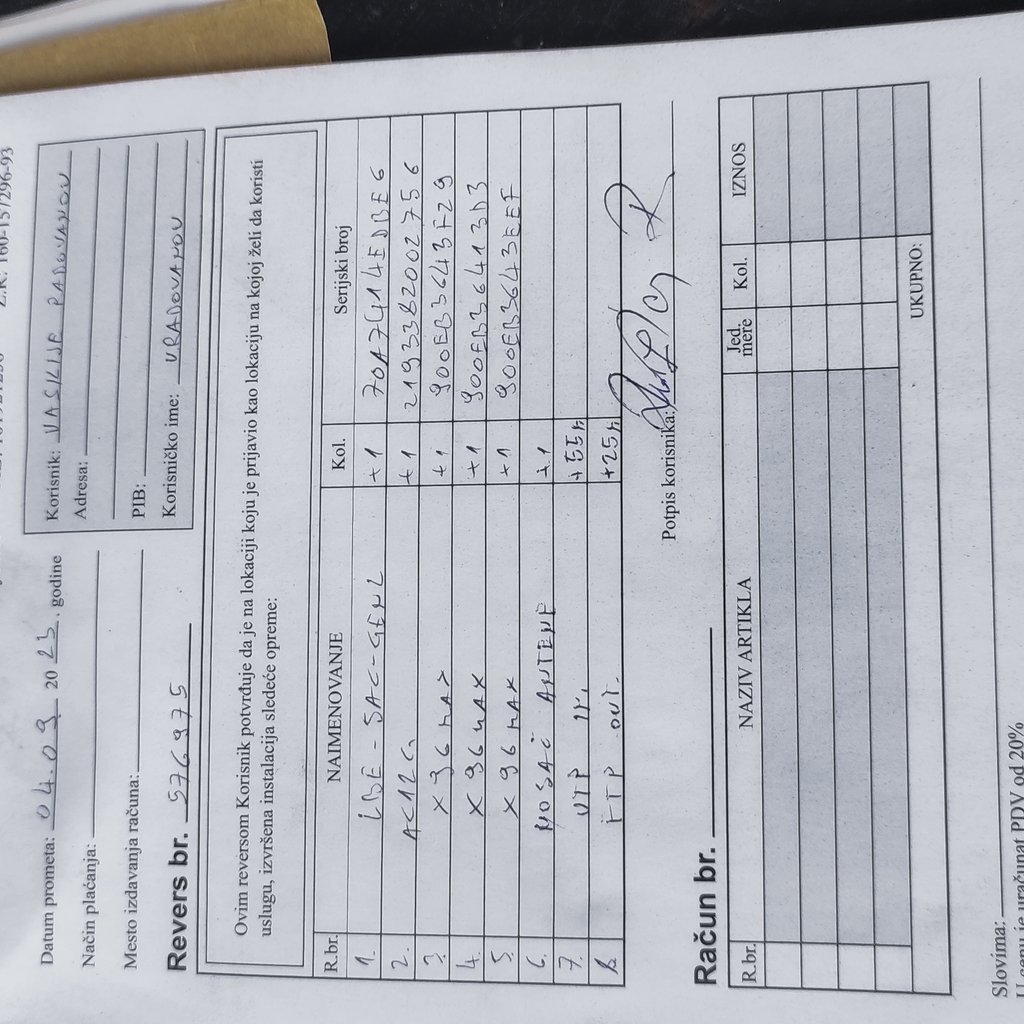 Datum prometa: 04.09 2023. godine
Način plaćanja:
Mesto izdavanja računa:
Korisnik: VASILIJE RADOVANOV
Adresa:
PIB:
Korisničko ime: VRADOVANOV
Revers br. 576975
Ovim reversom Korisnik potvrđuje da je na lokaciji koju je prijavio kao lokaciju na kojoj želi da koristi
uslugu, izvršena instalacija sledeće opreme:
R.br. NAIMENOVANJE Kol. Serijski broj
1. LBE-5AC-GEN2 +1 70A7414EDBE6
2. AC12G +1 2193382002756
3. X96 MAX +1 900EB3643F29
4. X96 MAX +1 900EB36413D3
5. X96 MAX +1 900EB3643EEF
6. NOSAČ ANTENE +1
7. UTP IN. +55m
8. FTP OUT. +25m
Potpis korisnika:
Račun br.
R.br. NAZIV ARTIKLA Jed. mere Kol. IZNOS
UKUPNO:
Slovima:
U cenu je uračunat PDV od 20%